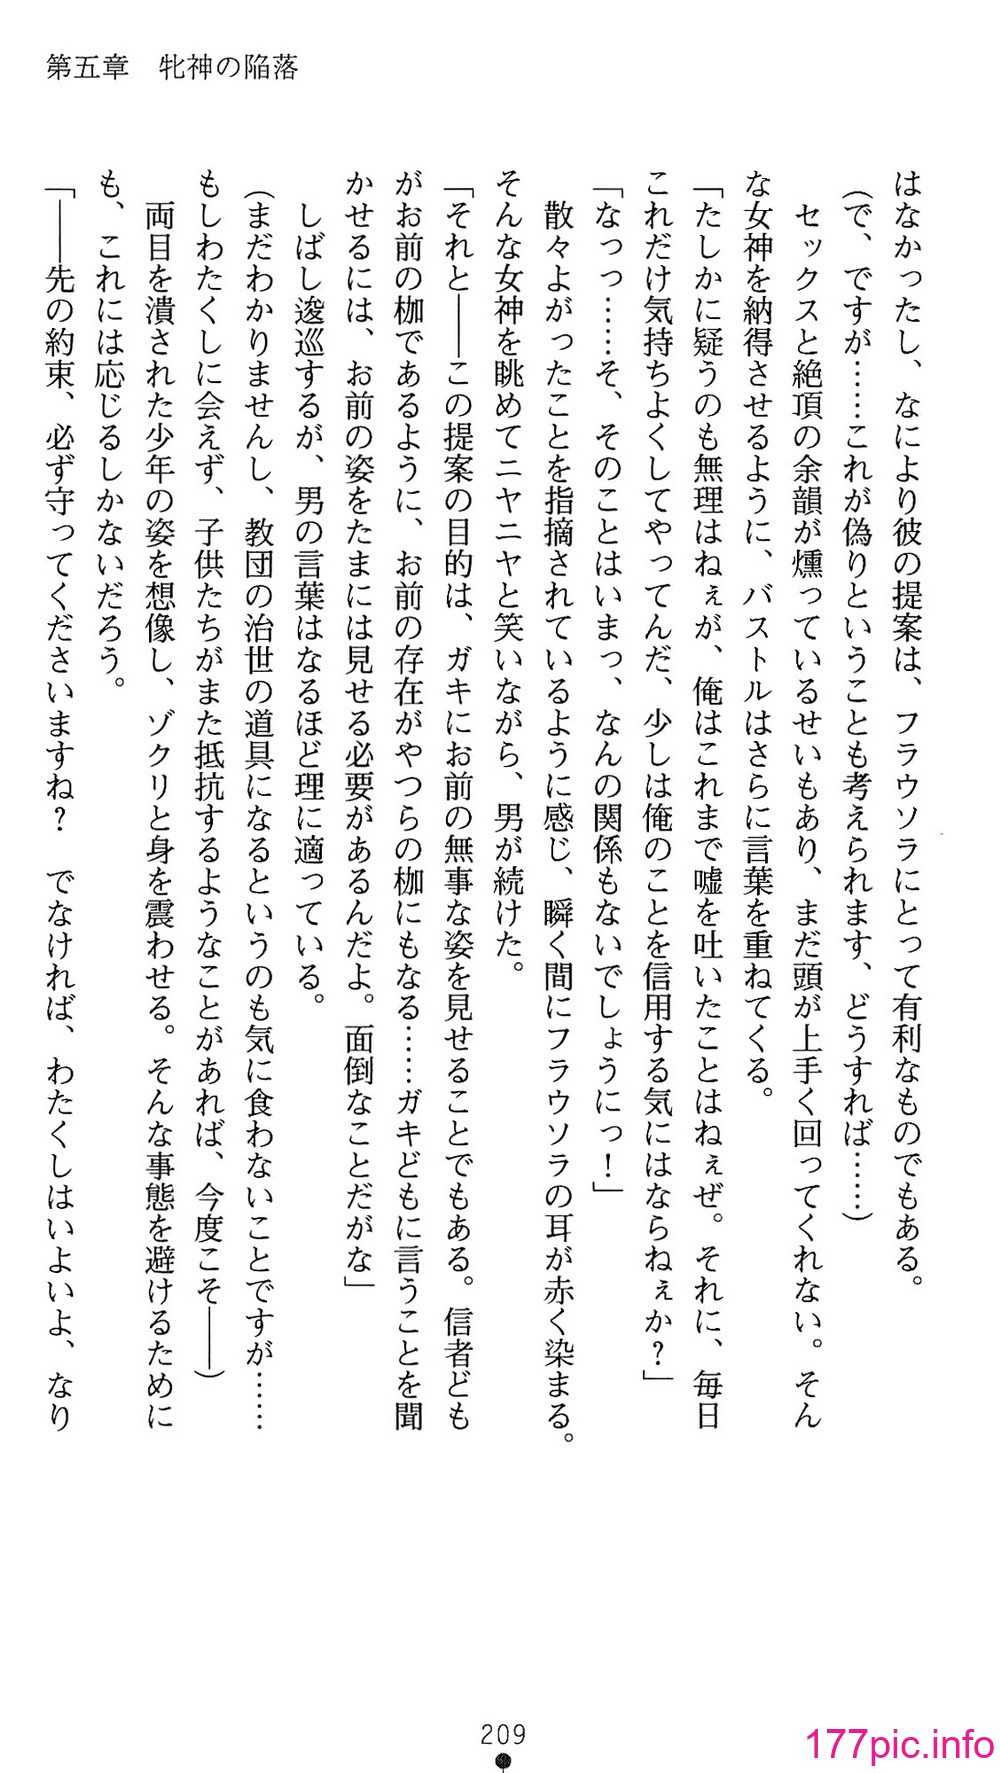 第五章　牝神の陥落
はなかったし、なにより彼の提案は、フラウソラにとって有利なものでもある。
（で、ですが……これが偽りということも考えられます、どうすれば……）
　セックスと絶頂の余韻が燻っているせいもあり、まだ頭が上手く回ってくれない。そん
な女神を納得させるように、バストルはさらに言葉を重ねてくる。
「たしかに疑うのも無理はねぇが、俺はこれまで嘘を吐いたことはねぇぜ。それに、毎日
これだけ気持ちよくしてやってんだ、少しは俺のことを信用する気にはならねぇか？」
「なっっ……そ、そのことはいまっ、なんの関係もないでしょうにっ！」
　散々よがったことを指摘されているように感じ、瞬く間にフラウソラの耳が赤く染まる。
そんな女神を眺めてニヤニヤと笑いながら、男が続けた。
「それと――この提案の目的は、ガキにお前の無事な姿を見せることでもある。信者ども
がお前の枷であるように、お前の存在がやつらの枷にもなる……ガキどもに言うことを聞
かせるには、お前の姿をたまには見せる必要があるんだよ。面倒なことだがな」
　しばし逡巡するが、男の言葉はなるほど理に適っている。
（まだわかりませんし、教団の治世の道具になるというのも気に食わないことですが……
もしわたくしに会えず、子供たちがまた抵抗するようなことがあれば、今度こそ――）
　両目を潰された少年の姿を想像し、ゾクリと身を震わせる。そんな事態を避けるために
も、これには応じるしかないだろう。
「――先の約束、必ず守ってくださいますね？　でなければ、わたくしはいよいよ、なり
209
177pic.info